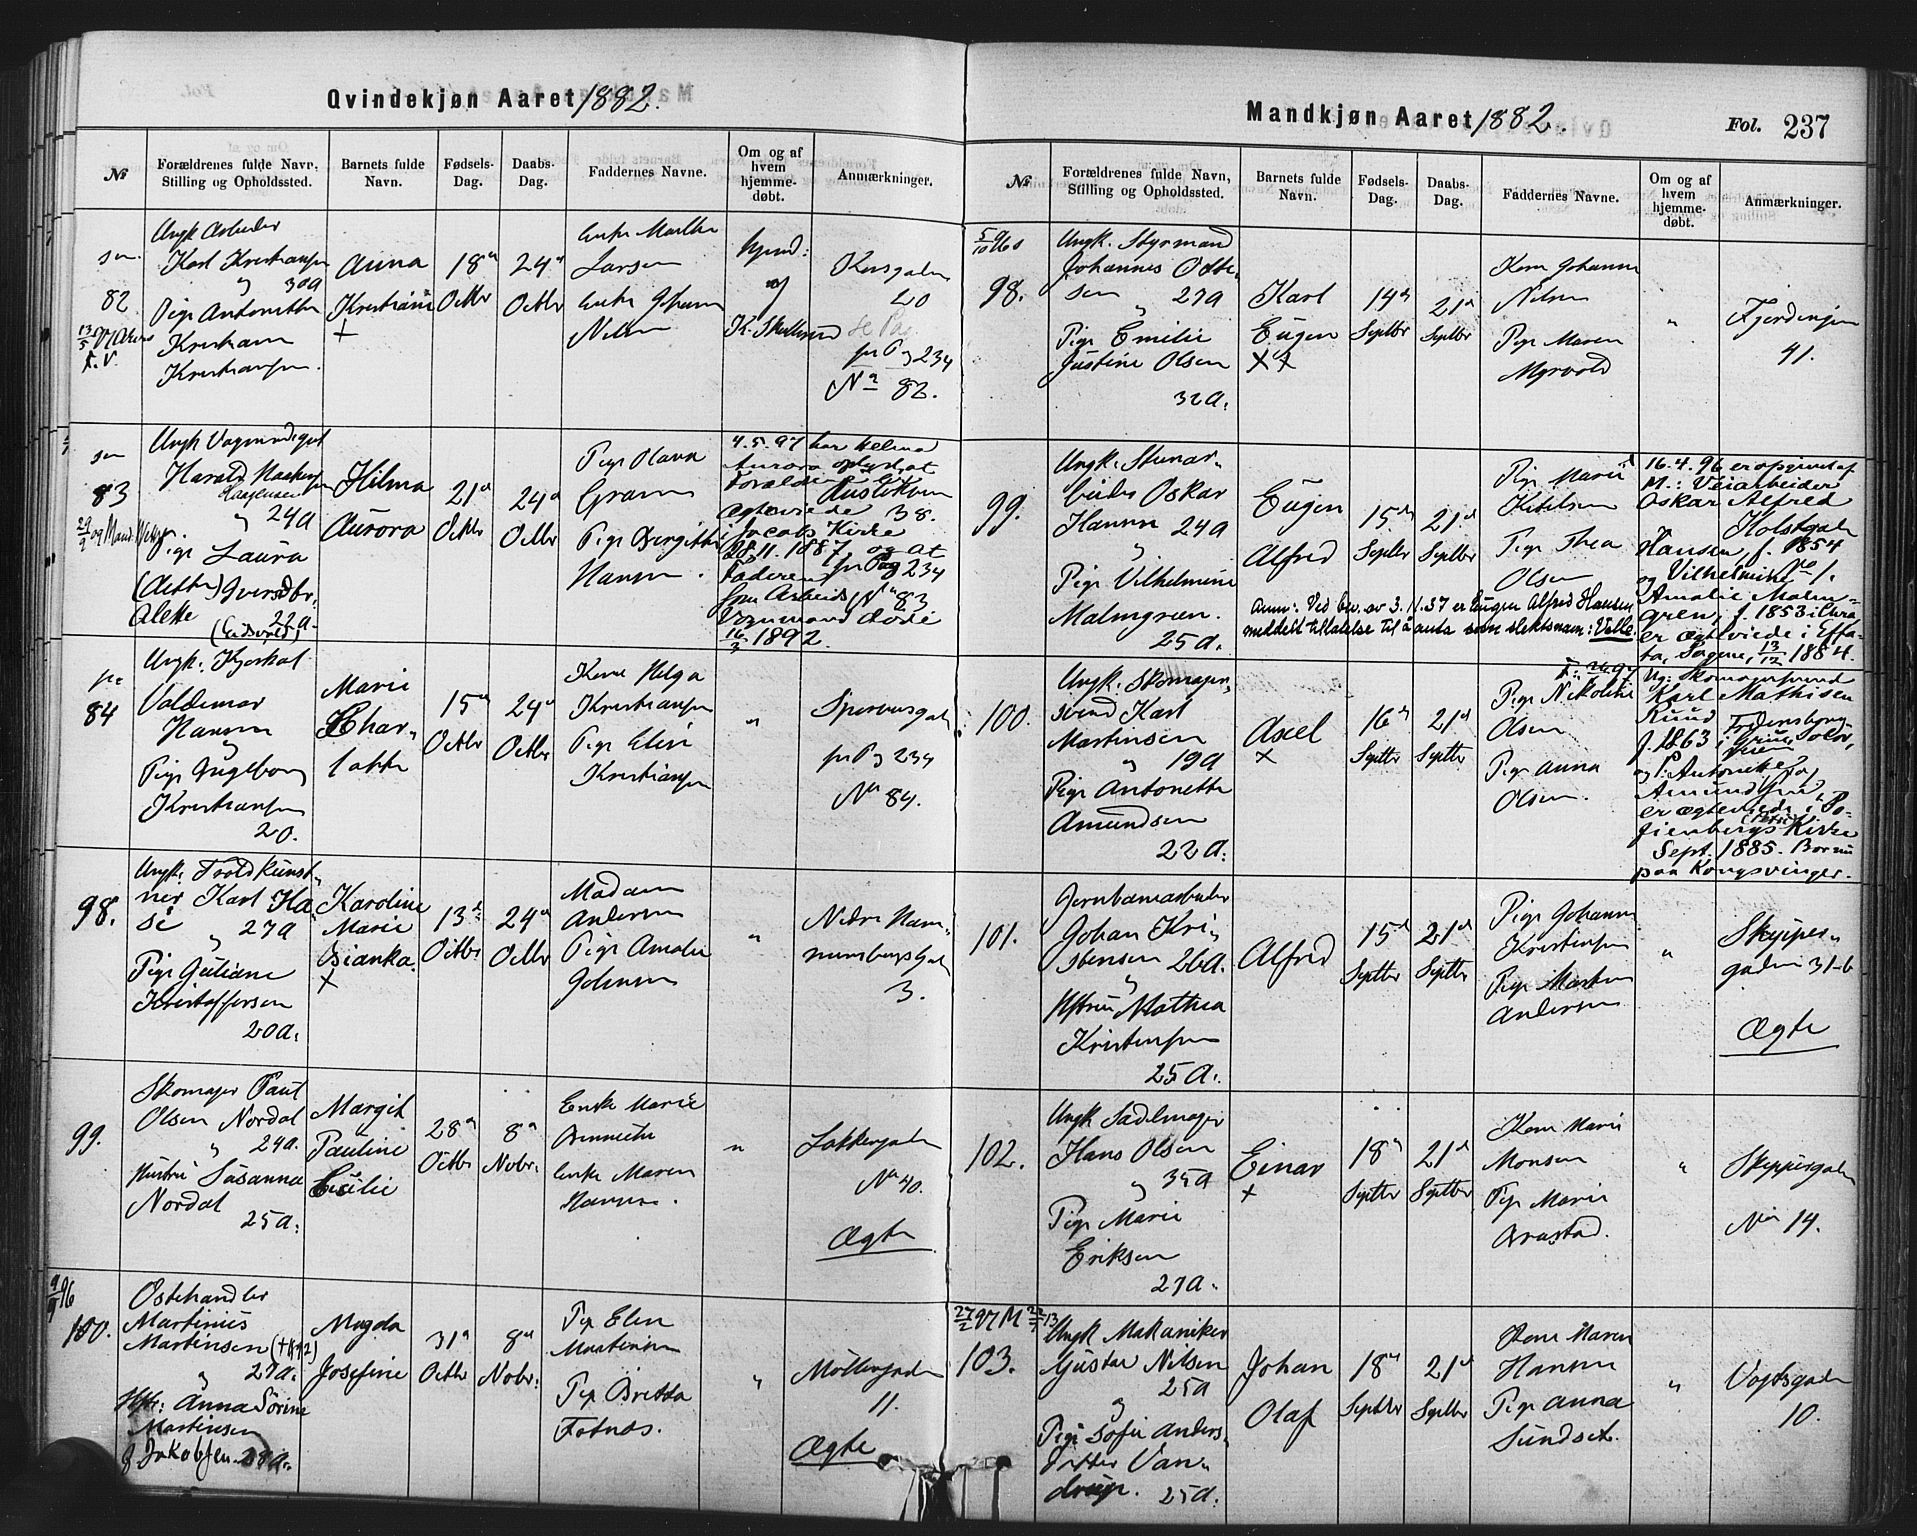 Qvindekjøn Aaret 1882.
№
Forældrenes fulde Navn,
Stilling og Opholdssted.
Barnets fulde
Navn.
Fødsels-
Dag.
Daabs-
Dag.
Faddernes Navne.
Om og af
hvem
hjemme-
døbt.
Anmærkninger.
82
Ungk Arbeider
Karl Kristiansen
og 30a
Pige Antonette
Kristiansen
Anna
Kristiane
+
18de
Octbr
24de
Octbr
Enke Marthe
Larsen
Enke Johanne
Nilsen
hjmd:
af
20
se Pag.
pr Pag 234
No 82.
83
Harald
24a
Pige Laura
Alette
22a.
(Eidsvold)
Hilma
Aurora
21de
Octbr
24de
Octbr
Pige Olava
Gram
Pige Birgitte
Hansen.
4.5.97 har Helma
Aurora oplyst, at
Forældrene er
Ægteviede
i Jacobs Kirke
28.11.1887, og at
Faderen
som Arbeids
Formand døde
16/3 1892.
38.
pr Pag 234
No 83
84
Valdemar
Hansen
og
Pige Ingeborg
Kristiansen
20.
Marie
Char-
lotte
15de
Octbr
24de
Octbr
Kone Helga
Kristiansen
Pige Elise
Kristiansen
"
pr Pag 234
No 84.
98.
Ungk: Troldkunst-
ner Karl Ha-
se 27a
Pige Juliane
Kristoffersen
20a.
Karoline
Marie
Bianka.
+
13de
Octbr
24de
Octbr
Madam
Andersen
Pige Amalie
Johnsen
"
Nedre Ham-
mersborgsgade
3.
99.
Skomager Paul
Olsen Nordal
24a.
Hustru Susanna
Nordal
25a.
Margit
Pauline
Cecilie
28de
Octbr
8de
Novbr.
Enke Marie
Enke Maren
Hansen.
"
Lakkegaden
No 40.
Ægte
9/9 96
100.
Ostehandler
Martinius
Martinsen
27a.
Hstr: Anna Sørine
Martinsen
f. Jakobsen. 28a.
Magda
Josefine
31de
Octbr
8de
Novbr.
Pige Elen
Martinsen
Pige Britta
Fotnæs.
"
Møllergaden
11.
Ægte
Mandkjøn Aaret 1882.
Fol. 237
№
Forældrenes fulde Navn,
Stilling og Opholdssted.
Barnets fulde
Navn.
Fødsels-
Dag.
Daabs-
Dag.
Faddernes Navne.
Om og af
hvem
hjemme-
døbt.
Anmærkninger.
98.
Ungk. Styrmand
Johannes Otte-
sen 27a
Pige Emilie
Justine Olsen
32a.
Karl
Eugen
14de
Septbr
21de
Septbr
Kone Johanne
Nilsen
Pige Maren
Myrvold
"
Fjerdingen
41.
99.
Ungk: Stenar-
beider Oskar
Hansen 24a
"
Pige Vilhelmine
Malmgreen.
25a.
Eugen
Alfred
15de
Septbr
21de
Septbr
Pige Marie
Kitelsen
Pige Thea
Olsen
Anm: Ved bev. av 3.11.37 er Eugen Alfred Hansen
meddelt tillatelse til å anta som slektsnavn: Valle.
16.4.96 er opgivet af
M.: Veiarbeider
Oskar Alfred
Holstgaden
Hansen, f. 1854
No 1.
og Vilhelmine
Amalie Malm-
green, f. 1853 i Chra
er ægteviede i Effa-
ta, Sagene, 13/12 1884.
100.
Ungk: Skomager-
svend Karl
Martinsen
og 19a
Pige Antonette
Amundsen
22a.
Axel
+
16de
Septbr
21de
Septbr
Pige Nikoline
Olsen
Pige Anna
Olsen.
Ug: Skomagersvend
Karl Mathisen
Ruud
f. 1863 i Grue, Solør,
og P: Antonette
Amundsen,
er ægteviede i
Kirke
Sept. 1885. Bor nu
paa Kongsvinger.
101.
Jernbanearbeider
Johan Kri-
stensen 26a.
og
Hstru Mathea
Kristensen
25a.
Alfred
15de
Septbr
21de
Septbr
Pige Johanne
Kristensen
Pige Marten
Andersen
"
Skipper-
gaden 31-b
Ægte
102.
Ungk Sadelmager
Hans Olsen
og 35a
Pige Marie
Eriksen
27a.
Einar
+
18de
Septbr
21de
Septbr
Kone Marie
Monsen
Pige Marie
"
Skippergaden
No 14.
103.
Ungk Makaniker
Gustav Nilsen
25a
og
Pige Sofie Anders-
datter Van-
drup. 25a.
Johan
Olaf
18de
Septbr
21de
Septbr
Kone Maren
Hansen
Pige Anna
Sundset.
"
Vogtsgaden
10.